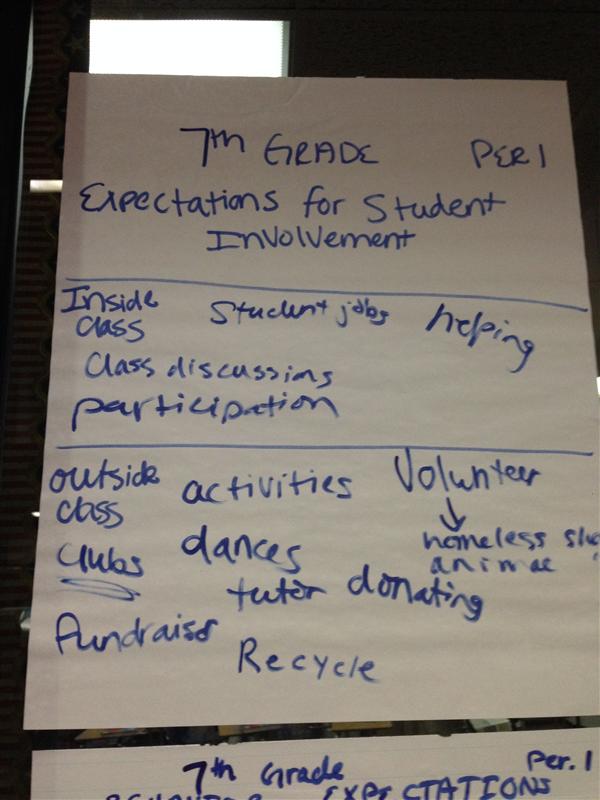 7th GRADE PER 1
Expectations for Student
Involvement
Inside class Student jobs helping
Class discussions
participation
outside class activities Volunteer
clubs dances homeless
animal
tutor donating
fundraiser
Recycle
7th Grade Per. 1
EXPECTATIONS